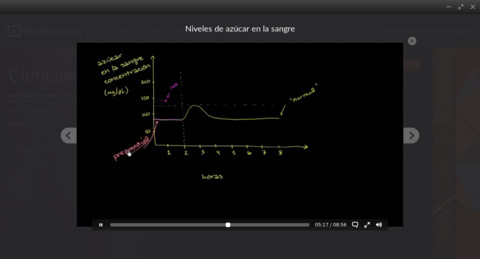 Niveles de azúcar en la sangre
azúcar
en la sangre
concentración
(mg/dL)
200
150
100
50
"normal"
preprandial
1 2 3 4 5 6 7 8
horas
05:17 / 08:56